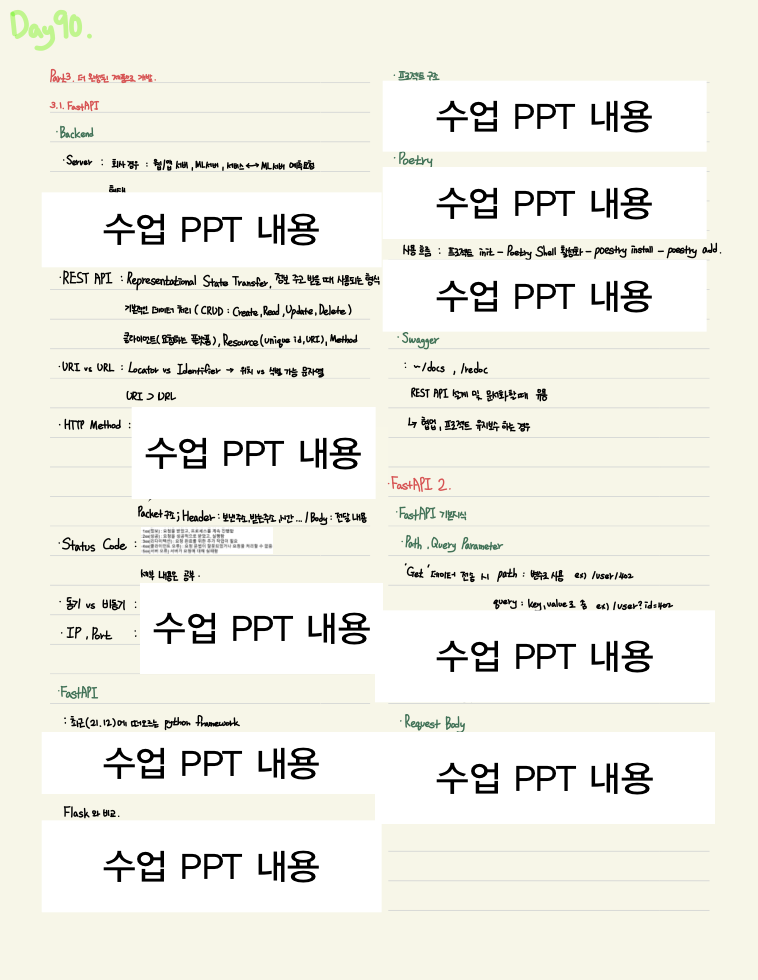 Day90.
Part3. 더 완성된 제품으로 개발.
3.1. FastAPI
·Backend
·Server : 회사 경우 : 웹/앱 서버, ML서버, 서비스 ↔ ML서버 예측요청
형태
수업 PPT 내용
·REST API : Representational State Transfer, 정보 주고 받을 때 사용되는 형식
기본적인 데이터 처리 (CRUD : Create, Read, Update, Delete)
클라이언트(요청하는 플랫폼), Resource(unique id, URI), Method
·URI vs URL : Locator vs Identifier → 위치 vs 식별 가능 문자열
URI ⊃ URL
·HTTP Method :
수업 PPT 내용
Packet 구조; Header : 보낸주소, 받는주소, 시간 ... / Body : 전달 내용
·Status Code :
1xx(정보) : 요청을 받았고, 프로세스를 계속 진행함
2xx(성공) : 요청을 성공적으로 받았고, 실행함
3xx(리다이렉션) : 요청 완료를 위한 추가 작업이 필요
4xx(클라이언트 오류) : 요청 문법이 잘못되었거나 요청을 처리할 수 없음
5xx(서버 오류) 서버가 요청에 대해 실패함
세부 내용은 공부.
·동기 vs 비동기 :
·IP, Port :
수업 PPT 내용
·FastAPI
: 최근(21.12)에 떠오르는 python framework
수업 PPT 내용
Flask 와 비교.
수업 PPT 내용
·프로젝트 구조
수업 PPT 내용
·Poetry
수업 PPT 내용
사용 흐름 : 프로젝트 init - Poetry Shell 활성화 - poestry install - poestry add.
수업 PPT 내용
·Swagger
: ~/docs , /redoc
REST API 설계 및 문서화할 때 유용
↳ 협업, 프로젝트 유지보수 하는 경우
·FastAPI 2.
·FastAPI 기본지식
·Path, Query Parameter
'Get' 데이터 전송 시 path : 변수로 사용 ex) /user/402
query : key, value로 줌 ex) /user?id=402
수업 PPT 내용
·Request Body
수업 PPT 내용